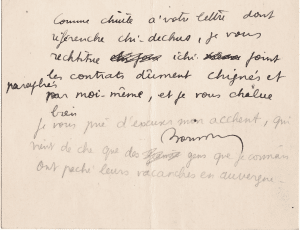 Comme chuite à votre lettre dont
référenche chi-dechus, je vous
rechtitue ichi joint
les contrats dûment chignés et
paraphés par moi-même, et je vous chalue
bien
je vous prie d'excuser mon accent, qui
vient de che que des gens que je connais
ont paché leurs vacanches en auvergne.